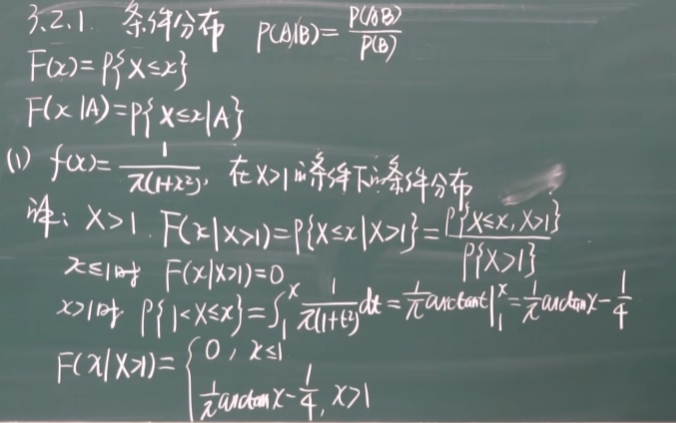 3.2.1. 条件分布 P(A|B)=P(AB)/P(B)
F(x)=P{X≤x}
F(x|A)=P{X≤x|A}
(1) f(x)=1/π(1+x²), 在X>1的条件下的条件分布
解: X>1. F(x|X>1)=P{X≤x|X>1}=P{X≤x, X>1}/P{X>1}
x≤1时 F(x|X>1)=0
x>1时 P{1<X≤x}=∫₁ˣ 1/π(1+t²) dt=1/π arctant|₁ˣ=1/π arctanx-1/4
F(x|X>1)={0, x≤1
1/π arctanx-1/4, x>1